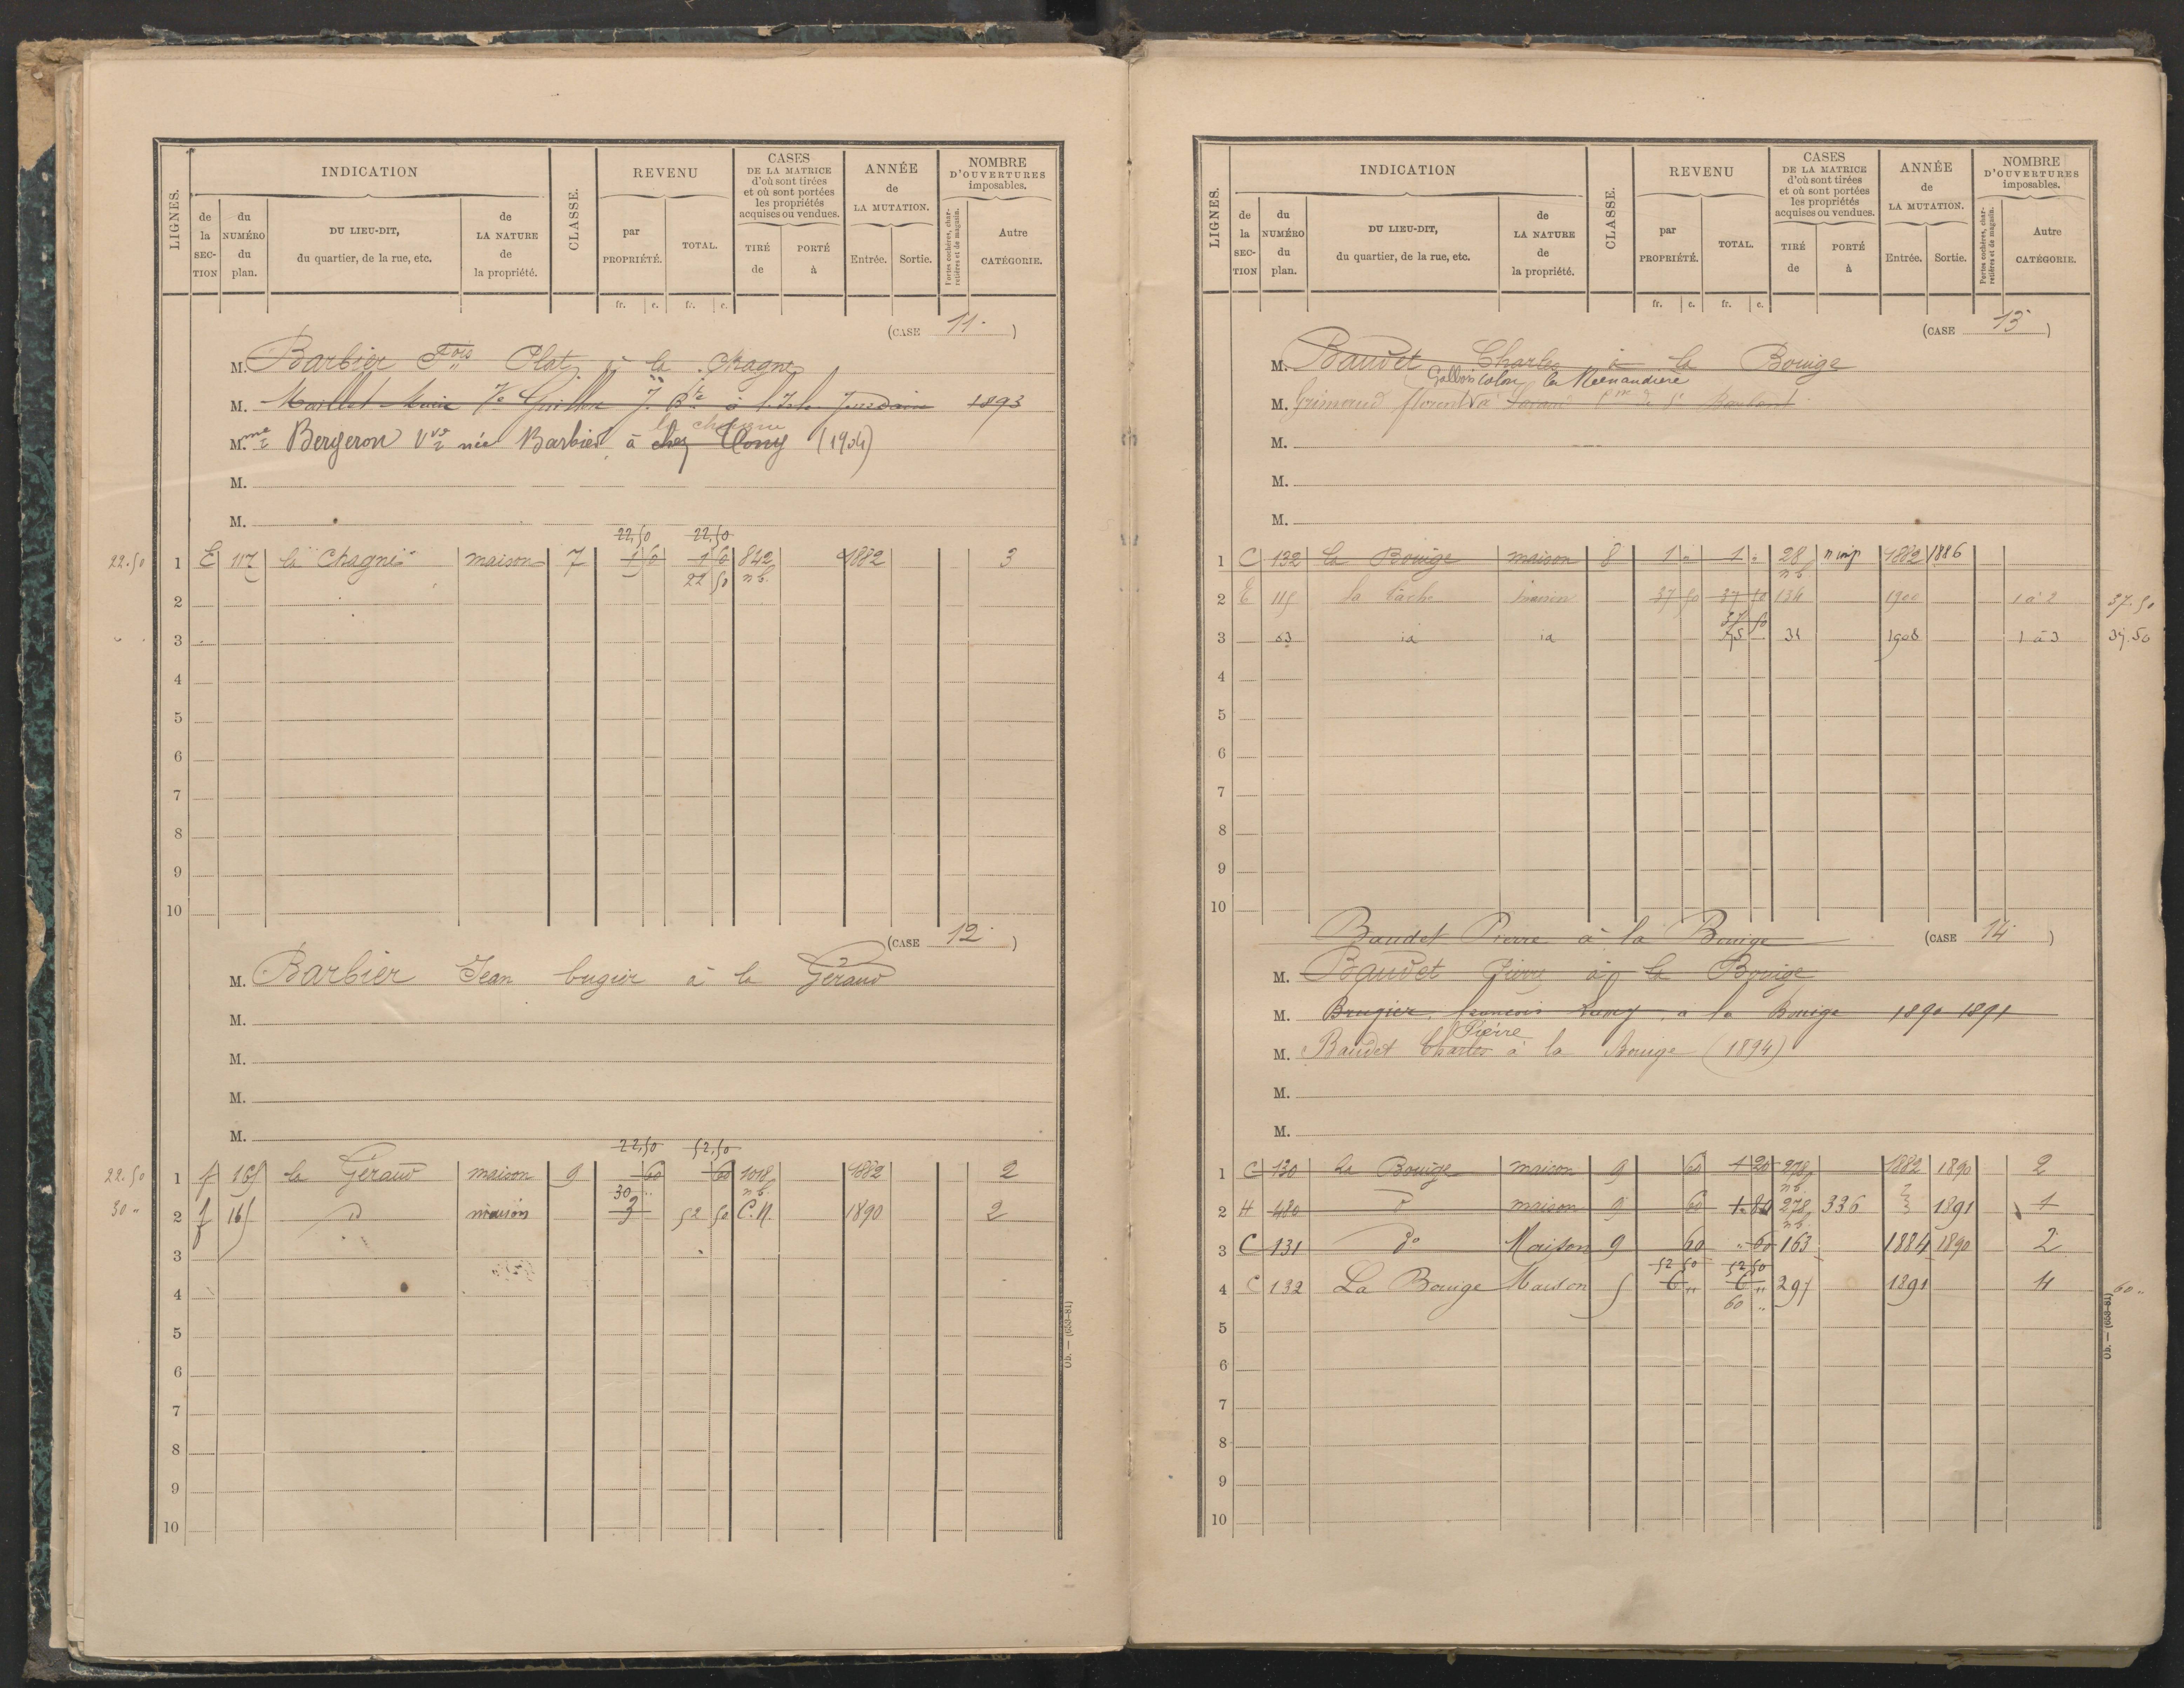 LIGNES.
INDICATION
CLASSE.
REVENU
CASES
DE LA MATRICE
d'où sont tirées
et où sont portées
les propriétés
acquises ou vendues.
ANNÉE
de
LA MUTATION.
NOMBRE
D'OUVERTURES
imposables.
de la SECTION
du NUMÉRO du plan.
DU LIEU-DIT,
du quartier, de la rue, etc.
de LA NATURE de la propriété.
par PROPRIÉTÉ.
TOTAL.
TIRÉ de
PORTÉ à
Entrée.
Sortie.
Portes cochères, charretières et de magasin.
Autre CATÉGORIE.
fr. c. fr. c.
(CASE 11 )
M. Barbier Fois à la Chagne
M. Maillet Marie à Jourdain 1893
Mme Bergeron Vve née Barbier, à chez (1904)
M.
M.
22,50 22,50
22.50 1 E 117 la Chagne maison 7 1 60 1 60 842 1882 3
22 50 n b.
2
3
4
5
6
7
8
9
10
(CASE 12 )
M. Barbier Jean à la Géraud
M.
M.
M.
M.
22,50 52,50
22.50 1 f 165 la Géraud maison 9 60 60 1018 1882 2
30 n b.
30 " 2 f 165 d maison 3 52 50 C.N. 1890 2
3
4
5
6
7
8
9
10
Ob. — (653-81)
LIGNES.
INDICATION
CLASSE.
REVENU
CASES
DE LA MATRICE
d'où sont tirées
et où sont portées
les propriétés
acquises ou vendues.
ANNÉE
de
LA MUTATION.
NOMBRE
D'OUVERTURES
imposables.
de la SECTION
du NUMÉRO du plan.
DU LIEU-DIT,
du quartier, de la rue, etc.
de LA NATURE de la propriété.
par PROPRIÉTÉ.
TOTAL.
TIRÉ de
PORTÉ à
Entrée.
Sortie.
Portes cochères, charretières et de magasin.
Autre CATÉGORIE.
fr. c. fr. c.
(CASE 13 )
M. Baudet Charles à la Bouige
colon
M. Grimaud florent à
M.
M.
M.
1 C 132 la Bouige maison 8 1 " 1 " 28 n imp 1882 1886
n b
2 E 115 la maison 37 50 37 50 134 1900 1 à 2 37.50
37 50
3 53 id id 75 34 1908 1 à 3 37.50
4
5
6
7
8
9
10
Baudet Pierre à la Bouige
(CASE 14 )
M. Baudet Pierre à la Bouige
M. Brugier, françois à la Bouige 1890 1891
Pierre
M. Baudet Charles à la Bouige (1894)
M.
M.
1 C 130 la Bouige maison 9 60 1 20 278 1882 1890 2
n b.
2 H 480 d maison 9 60 1 80 278 336 1891 1
n b.
3 C 131 do Maison 9 60 " 60 163 1884 1890 2
52 50 52 50
4 C 132 La Bouige Maison 5 6 " 6 " 297 1891 4 60 "
60 "
5
6
7
8
9
10
Ob. — (653-81)